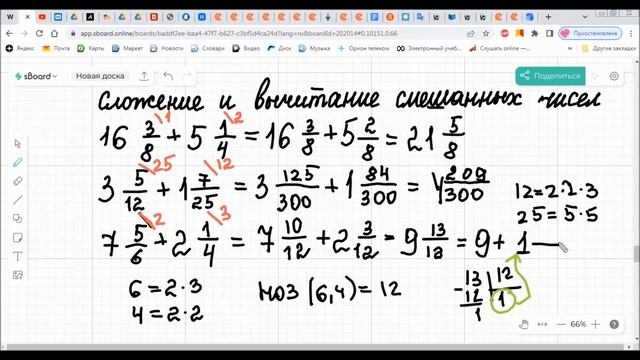 app.sboard.online/boards/baddf2ee-baa4-47f7-b627-c3bf5d4ca24d?lang=ru&boardId=202014#0.10151,0.66
Приостановлена
Новости
КЕВ
Погода
Маркет
Орион телеком
Электронный учеб...
Слушать online
Другие закладки
sBoard
Новая доска
Поделиться
сложение и вычитание смешанных чисел
16 3/8 \1 + 5 1/4 \2 = 16 3/8 + 5 2/8 = 21 5/8
3 5/12 \25 + 1 7/25 \12 = 3 125/300 + 1 84/300 = 4 209/300
12=2·2·3
25=5·5
7 5/6 \2 + 2 1/4 \3 = 7 10/12 + 2 3/12 = 9 13/12 = 9+1
6=2·3
4=2·2
НОЗ (6,4)=12
13 | 12
- 12 | 1
1
66%